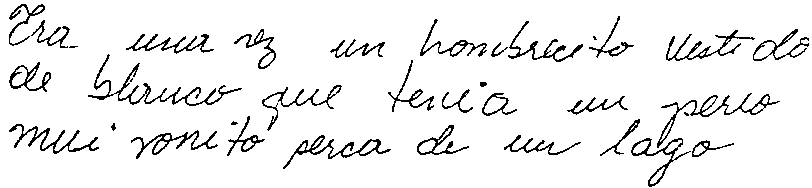 Era una vez un hombrecito vestido
de blanco que tenia un perro
mui vonito serca de un lago